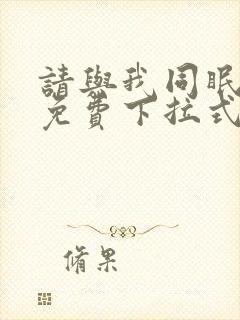 請與我同眠
免費下拉式
脩果